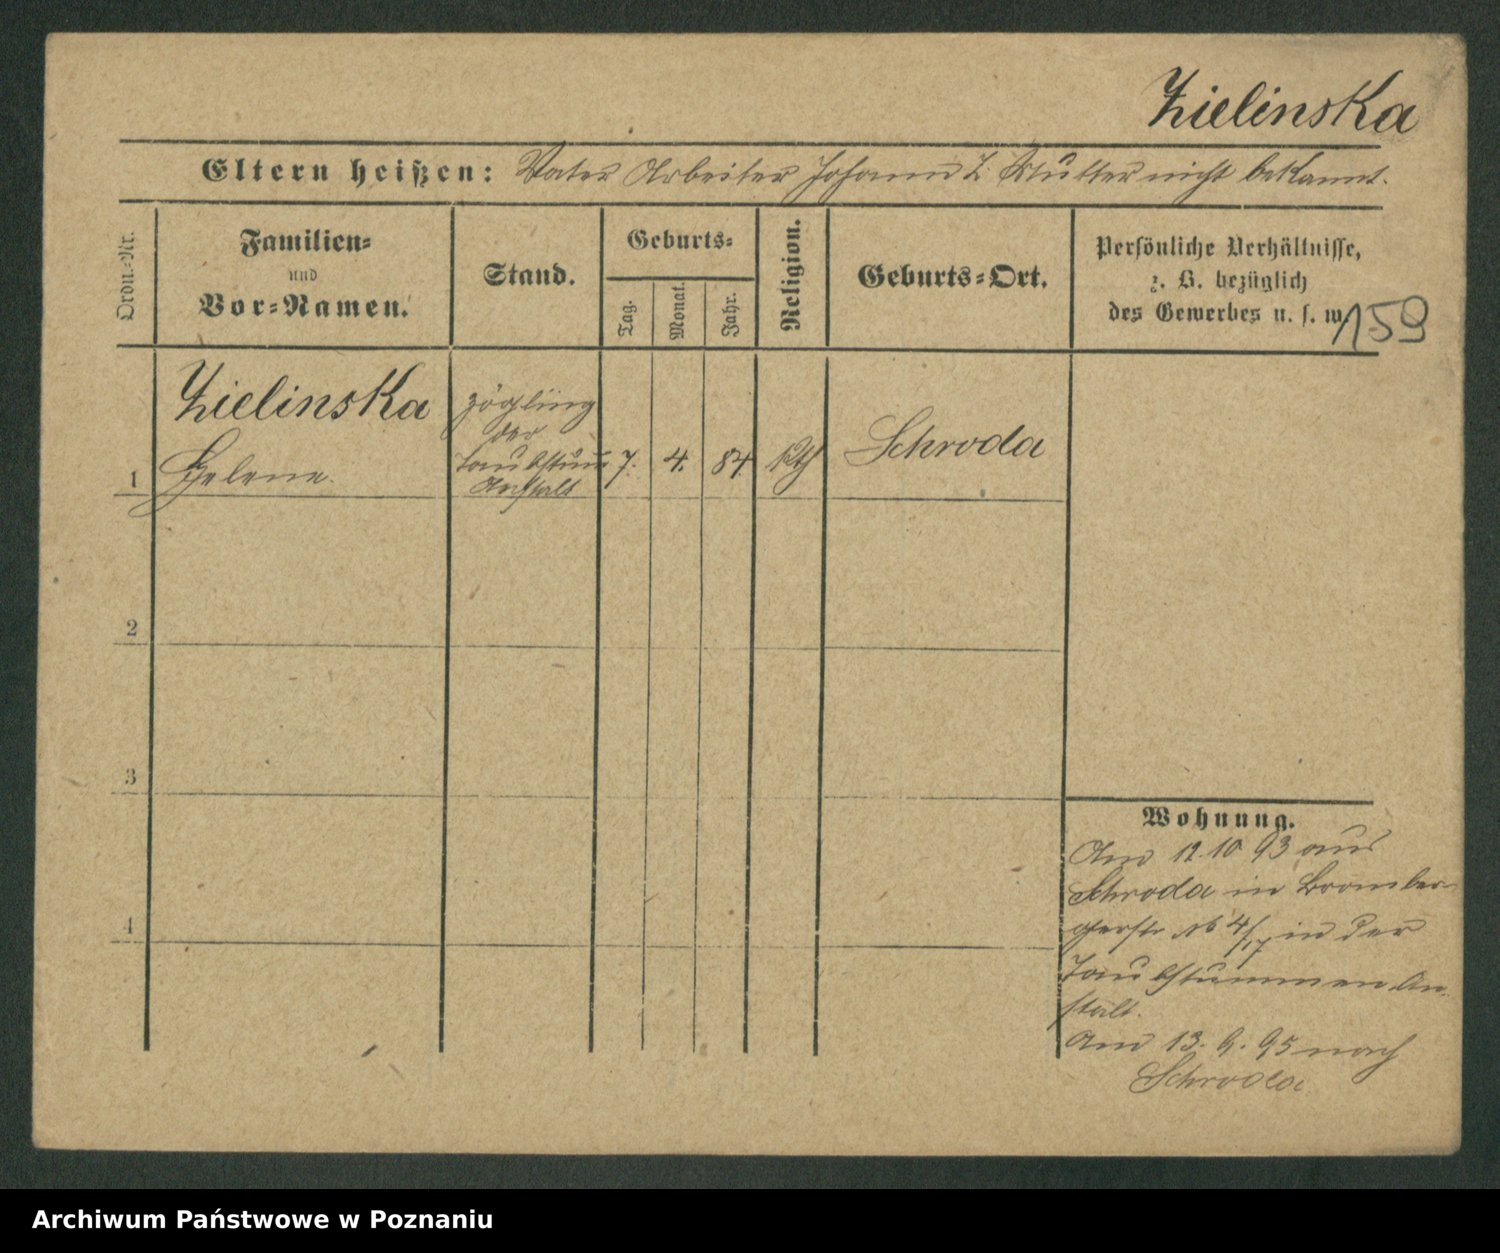 Zielinska
Eltern heißen: Vater Arbeiter Johann Z. Mutter nicht bekannt.
Ordn.-Nr.
Familien-
und
Vor-Namen.
Stand.
Geburts-
Tag.
Monat.
Jahr.
Religion.
Geburts-Ort.
Persönliche Verhältnisse,
z. B. bezüglich
des Gewerbes u. s. w.
159
1
Zielinska
Helene.
zögling
der
Taubstum
Anstalt
7.
4.
84
kth
Schroda
2
3
4
Wohnung.
Am 12.10 93 aus
Schroda in Bromber-
gerstr No 4/17 in der
Taubstummen An-
stalt.
Am 13. 9. 95 nach
Schroda
Archiwum Państwowe w Poznaniu